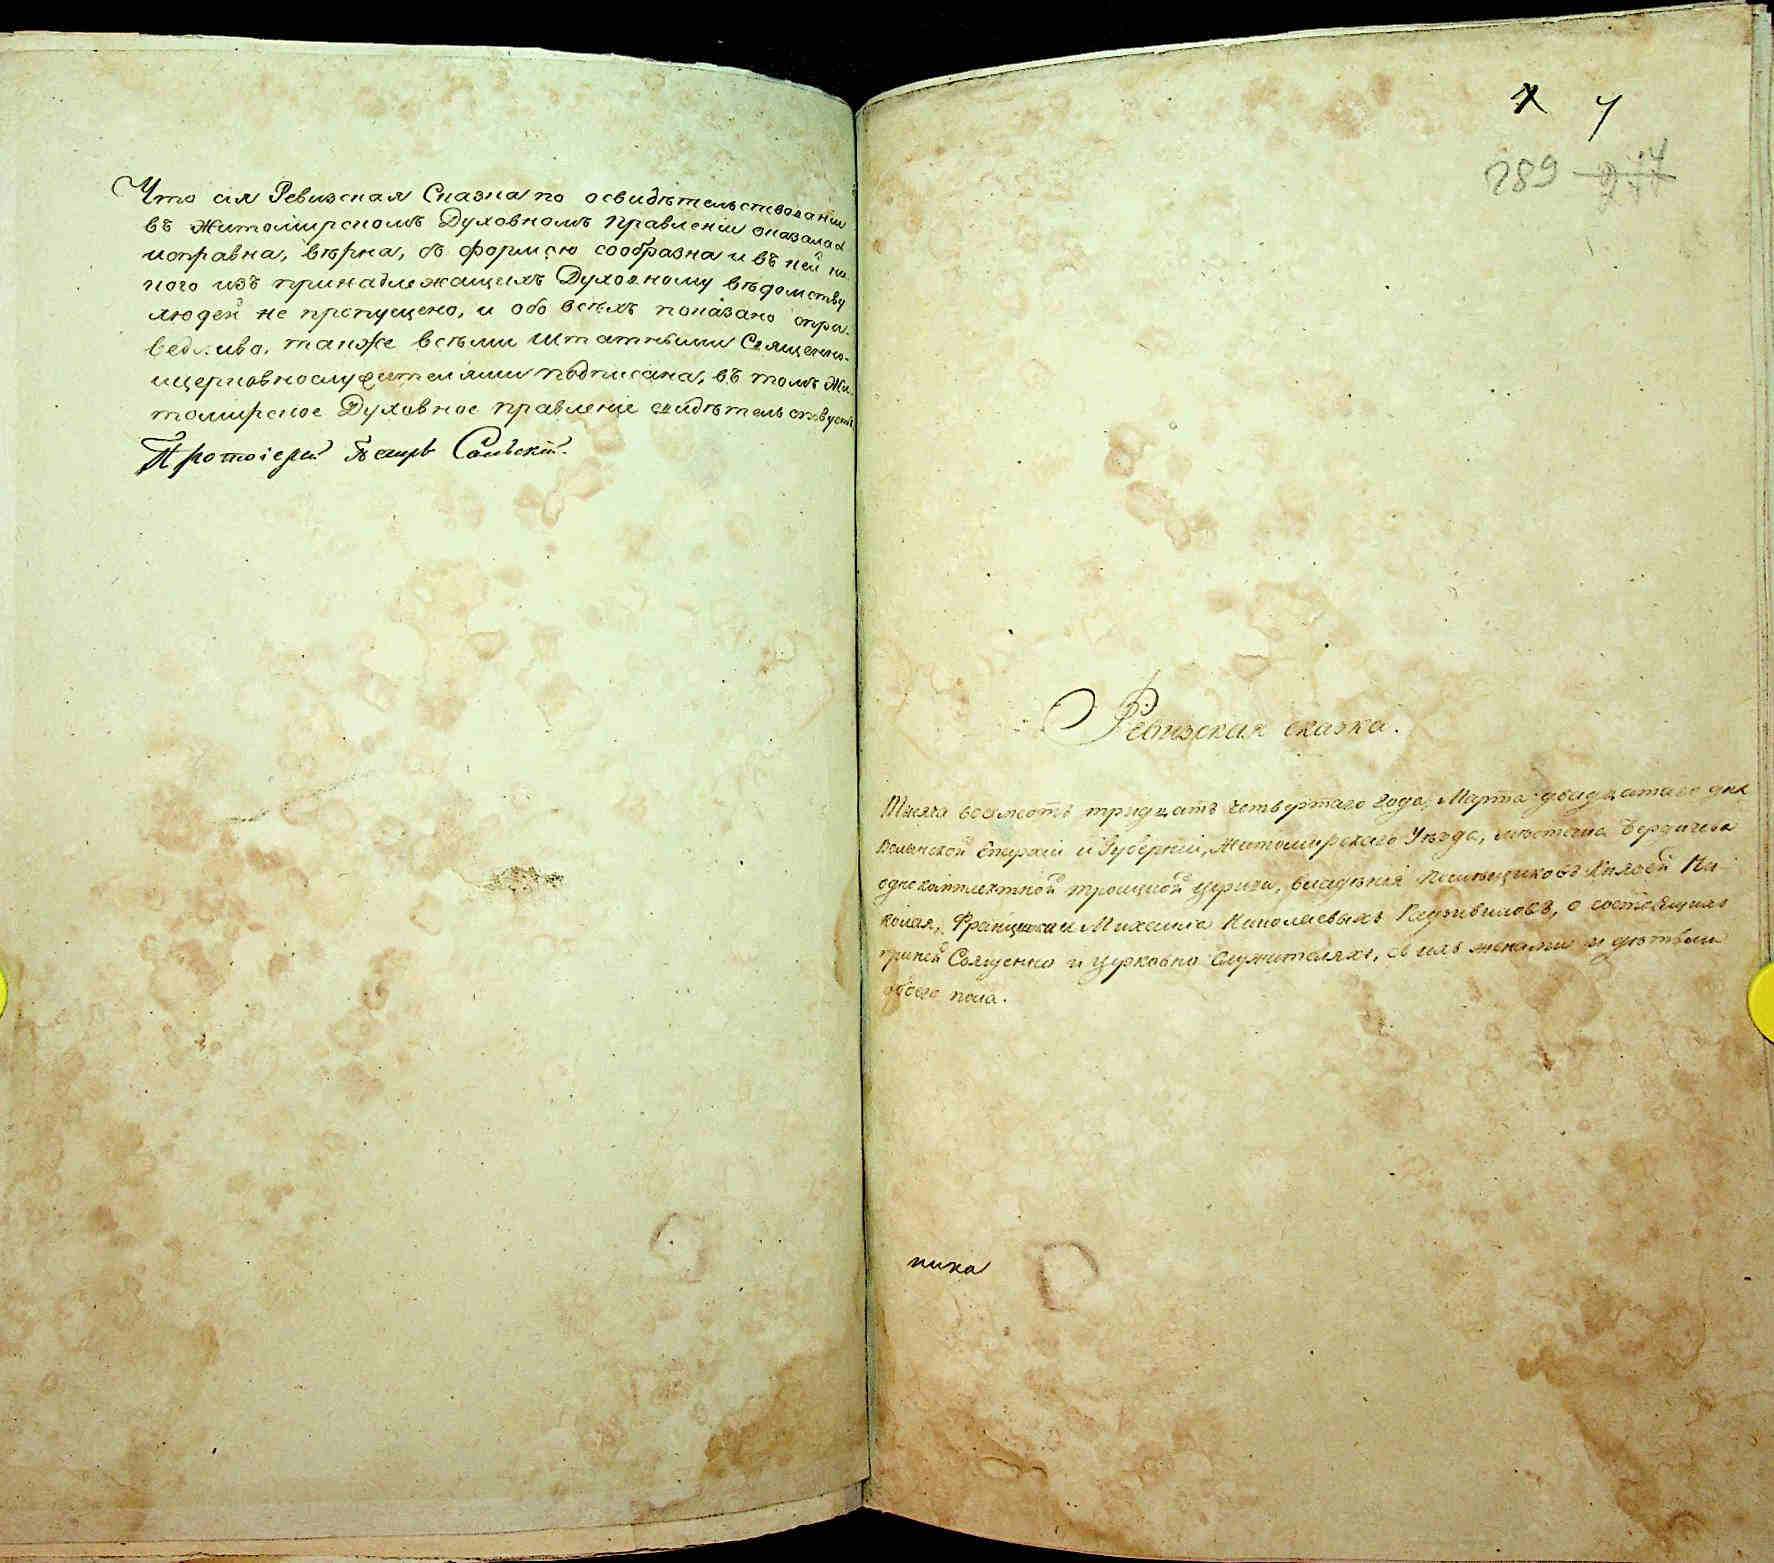 Что сія Ревизская Сказка по освидѣтельствованіи
въ Житомірскомъ Духовномъ Правленіи оказалась
исправна, вѣрна, съ формою сообразна и въ ней ни
кого изъ принадлежащихъ Духовному вѣдомству
людей не пропущено, и обо всѣхъ показано спра-
ведливо, также всѣми Штатными Священно-
ицерковнослужителями подписана, въ томъ Жи-
томирское Духовное правленіе свидѣтельствуетъ
Протоіерей Петръ Сальскій.
7
289
Ревизская сказка.
Тысяча восемсотъ тридцать четвертаго года, Марта двадцатаго дня
Волынской Епархіи и Губерніи, Житомирскаго Уѣзда, мѣстечка Бердичева
однокомплектной троицкой церкви, владѣнія помѣщиковъ Князей Ни-
колая, Францишка и Михаила Николаевыхъ Радзивиловъ, о состоящихъ
приней Священно и церковно Служителяхъ, съ ихъ женами и дѣтьми
обоего пола.
ника